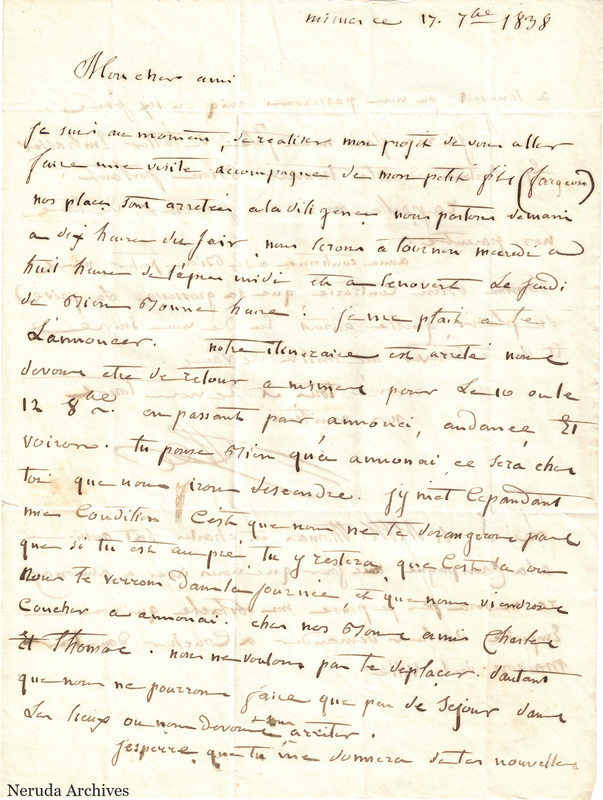 17. 7bre 1838
Mon cher ami
Je suis au moment, de realiser mon projet de vous aller
faire une visite accompagné de mon petit fils
nos places sont arretées a la diligence nous partons demain
a dix heure du soir, nous serons a tournon mercredi a
huit heure de l'apres midi et a le jeudi
de Bien Bonne heure. Je me plait a te
L'annoncer. notre itineraire est arreté nous
devons etre de retour a pour Le 10 ou le
12 8bre en passant par annonai, andance Et
voiron. tu pense Bien qu'a annonai, ce sera chez
toi que nous irons descendre. j'y met Cependant
une Condition C'est que nous ne te derangerons pas
que si tu est au pré, tu y restera, que C'est la ou
Nous te verrons Dans la journée, et que nous viendrons
Coucher a annonai. chez nos Bons amis Charles
Et Thomas. nous ne voulons pas te deplacer. d'autant
que nous ne pourrons faire que peu de Sejour dans
Les lieux ou nous devons arreter.
J'esperre que tu me donnera de tes nouvelles
Neruda Archives